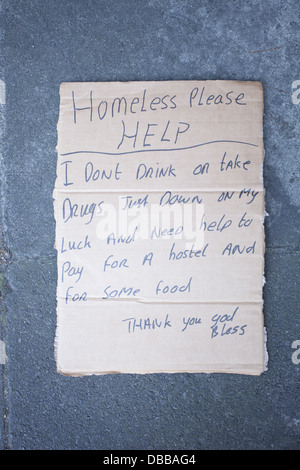 Homeless Please
HELP
I DONT DRINK OR TAKE
DRUGS JUST DOWN ON MY
Luck AND NEED help to
Pay FOR A hostel AND
FOR SOME food
THANK YOU god
Bless
alamy stock photo
DBBAG4